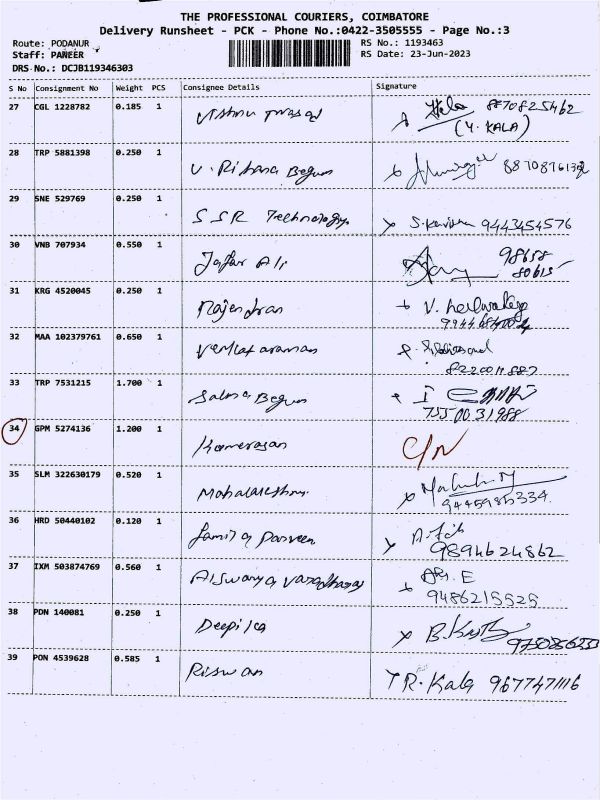 THE PROFESSIONAL COURIERS, COIMBATORE
Delivery Runsheet - PCK - Phone No.:0422-3505555 - Page No.:3
Route: PODANUR RS No.: 1193463
Staff: PANEER RS Date: 23-Jun-2023
DRS No.: DCJB119346303
S No Consignment No Weight PCS Consignee Details Signature
27 CGL 1228782 0.185 1 Vishnu prasad 8870825462
(Y. KALA)
28 TRP 5881398 0.250 1 U. Rihana Begum
29 SNE 529769 0.250 1 SSR Technology 9443454576
30 VNB 707934 0.550 1 Jafar Ali 98658
80615
31 KRG 4520045 0.250 1 Rajendran V.
32 MAA 102379761 0.650 1 Venkataraman
33 TRP 7531215 1.700 1 Salma Begum
7550031988
34 GPM 5274136 1.200 1 C/N
35 SLM 322630179 0.520 1
9445985334
36 HRD 50440102 0.120 1 Jamila Parveen
9894624862
37 IXM 503874769 0.560 1 Aiswarya
9486215525
38 PDN 140081 0.250 1 Deepika
39 PON 4539628 0.585 1 Riswan R. Kala 9677471116